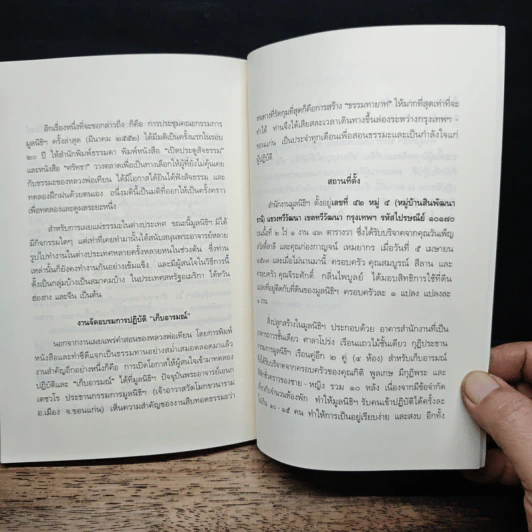 อีกเรื่องหนึ่งที่จะขอกล่าวถึง ก็คือ การประชุมคณะกรรมการ
มูลนิธิฯ ครั้งล่าสุด (มีนาคม ๒๕๕๒) ได้มีมติเป็นครั้งแรกในรอบ
๒๐ ปี ให้สำนักพิมพ์ธรรมดา พิมพ์หนังสือ “เปิดประตูสัจธรรม”
และหนังสือ “ศรัทธา” วางตลาดเพื่อเป็นทางเลือกให้ผู้ที่ยังไม่คุ้นเคย
กับธรรมะของหลวงพ่อเทียน ได้มีโอกาสได้ยินได้ฟังสัจธรรม และ
ทดลองฝึกฝนด้วยตนเอง อนึ่งมตินี้เป็นมติที่ออกให้เป็นครั้งคราว
เพื่อทดลองและดูผลระยะหนึ่ง
สำหรับการเผยแผ่ธรรมะในต่างประเทศ ขณะนี้มูลนิธิฯ มิได้
มีกิจกรรมใดๆ แต่เท่าที่เคยทำมานั้นได้สนับสนุนพระอาจารย์หลาย
รูปไปทำงานในต่างประเทศหลายครั้งหลายหนในช่วงต้น ซึ่งท่าน
เหล่านั้นก็ยังคงทำงานกันอย่างเข้มแข็ง และมีผู้สนใจในวิธีการนี้
ตั้งเป็นกลุ่มบ้างเป็นสมาคมบ้าง ในประเทศสหรัฐอเมริกา ไต้หวัน
ฮ่องกง และจีน เป็นต้น
งานจัดอบรมการปฏิบัติ “เก็บอารมณ์”
นอกจากงานเผยแพร่คำสอนของหลวงพ่อเทียน โดยการพิมพ์
หนังสือและทำซีดีแจกเป็นธรรมทานอย่างสม่ำเสมอตลอดมาแล้ว
งานสำคัญอีกอย่างหนึ่งก็คือ การเปิดโอกาสให้ผู้สนใจเข้ามาทดลอง
ปฏิบัติและ “เก็บอารมณ์” ได้ที่มูลนิธิฯ ปัจจุบันพระอาจารย์เอนก
เตชวโร ประธานกรรมการมูลนิธิฯ (เจ้าอาวาสวัดโมกขวนาราม
อ.เมือง จ.ขอนแก่น) เห็นความสำคัญของงานสืบทอดธรรมะว่า
หนทางที่รัดกุมที่สุดก็คือการสร้าง “ธรรมทายาท” ให้มากที่สุดเท่าที่จะ
ทำได้ ท่านจึงได้เสียสละเวลาเดินทางขึ้นล่องระหว่างกรุงเทพฯ
ขอนแก่น เป็นประจำทุกเดือนเพื่อสอนธรรมะและเป็นกำลังใจแก่
ผู้ปฏิบัติ
สถานที่ตั้ง
สำนักงานมูลนิธิฯ ตั้งอยู่เลขที่ ๕๒ หมู่ ๕ (หมู่บ้านสินพัฒนา
ธานี) แขวงทวีวัฒนา เขตทวีวัฒนา กรุงเทพฯ รหัสไปรษณีย์ ๑๐๑๗๐
บนเนื้อที่ ๒ ไร่ ๑ งาน ตารางวา ซึ่งได้รับบริจาคจากคุณวันเพ็ญ
สวัสดิ์สาลี และคุณก่องกาญจน์ เหมยากร เมื่อวันที่ ๕ เมษายน
และเมื่อไม่นานมานี้ ครอบครัว คุณสมบูรณ์ สีลาน และ
ครอบครัว คุณจีระศักดิ์ กลิ่นไพบูลย์ ได้มอบสิทธิการใช้ที่ดิน
และที่อยู่ติดกับที่ดินของมูลนิธิฯ ครอบครัวละ ๑ แปลง แปลงละ
๑ งาน
สิ่งปลูกสร้างในมูลนิธิฯ ประกอบด้วย อาคารสำนักงานที่เป็น
อาคารถาวรชั้นเดียว ศาลาโปร่ง เรือนแถวไม้ชั้นเดียว กุฏิประธาน
กรรมการมูลนิธิฯ เรือนคู่อีก ๒ คู่ (๔ ห้อง) สำหรับเก็บอารมณ์
ได้รับบริจาคจากครอบครัวของคุณกิติ พูลเกษ มีกุฏิพระ และ
ที่พักชั่วคราวของชาย - หญิง รวม ๑๐ หลัง เนื่องจากมีข้อจำกัด
เกี่ยวกับจำนวนห้องพัก ทำให้มูลนิธิฯ รับคนเข้าปฏิบัติได้ครั้งละ
ไม่เกิน ๑๐ - ๑๕ คน ทำให้การเป็นอยู่เรียบง่าย และสงบ อีกทั้ง